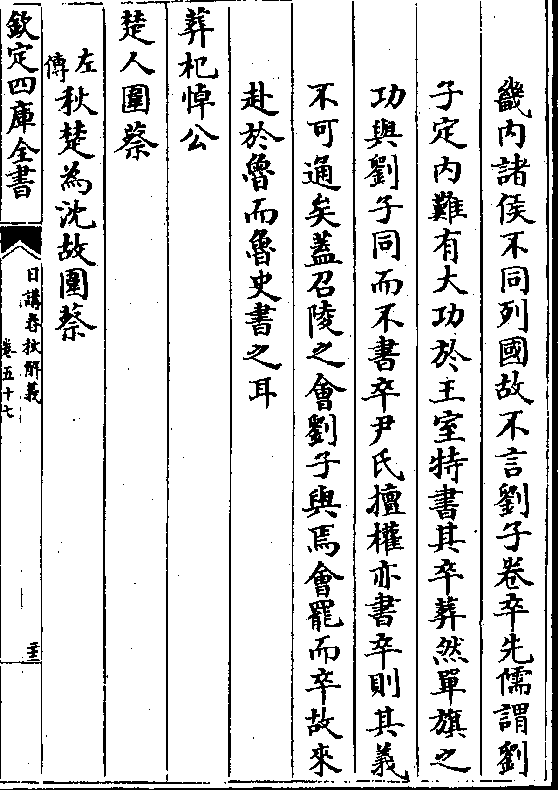 畿内諸侯不同列國故不言劉子卷卒先儒謂劉
子定内難有大功於王室特書其卒葬然單旗之
功與劉子同而不書卒尹氏擅權亦書卒則其義
不可通矣蓋召陵之會劉子與焉會罷而卒故來
赴於魯而魯史書之耳
葬杞悼公
楚人圍蔡
左傳秋楚為沈故圍蔡
欽定四庫全書
日講春秋解義
卷五十七